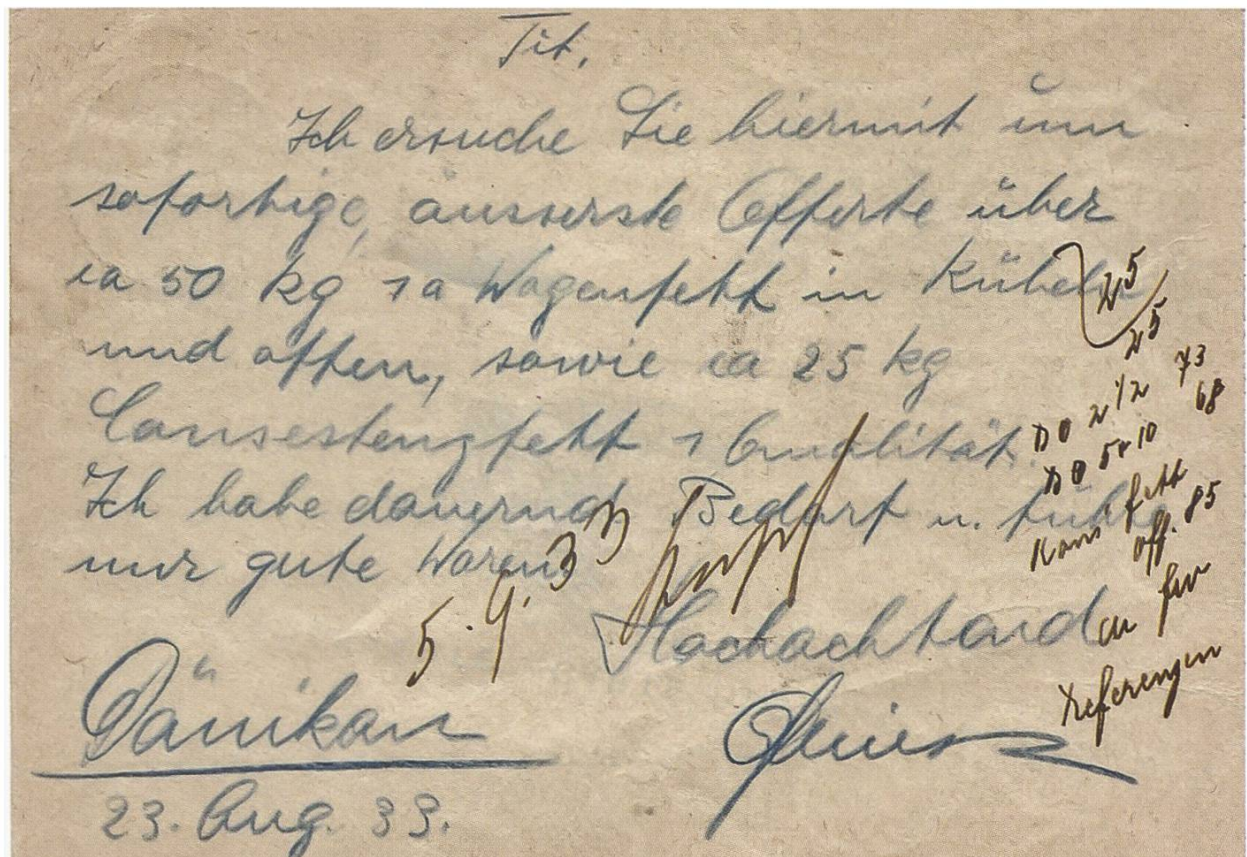 Tit.
Ich ersuche Sie hiermit um
sofortige, äusserste Offerte über
ca 50 kg 1a Wagenfett in Kübeln
und offen, sowie ca 25 kg
1 Qualität.
Ich habe dauernd Bedarf u. führe
nur gute Waren.
Hochachtend
Däniken
23. Aug. 33.
25
25
DO 2 1/2 73
DO 5+10 68
Kons' fett
off. 85
Referenzen
5.9.33